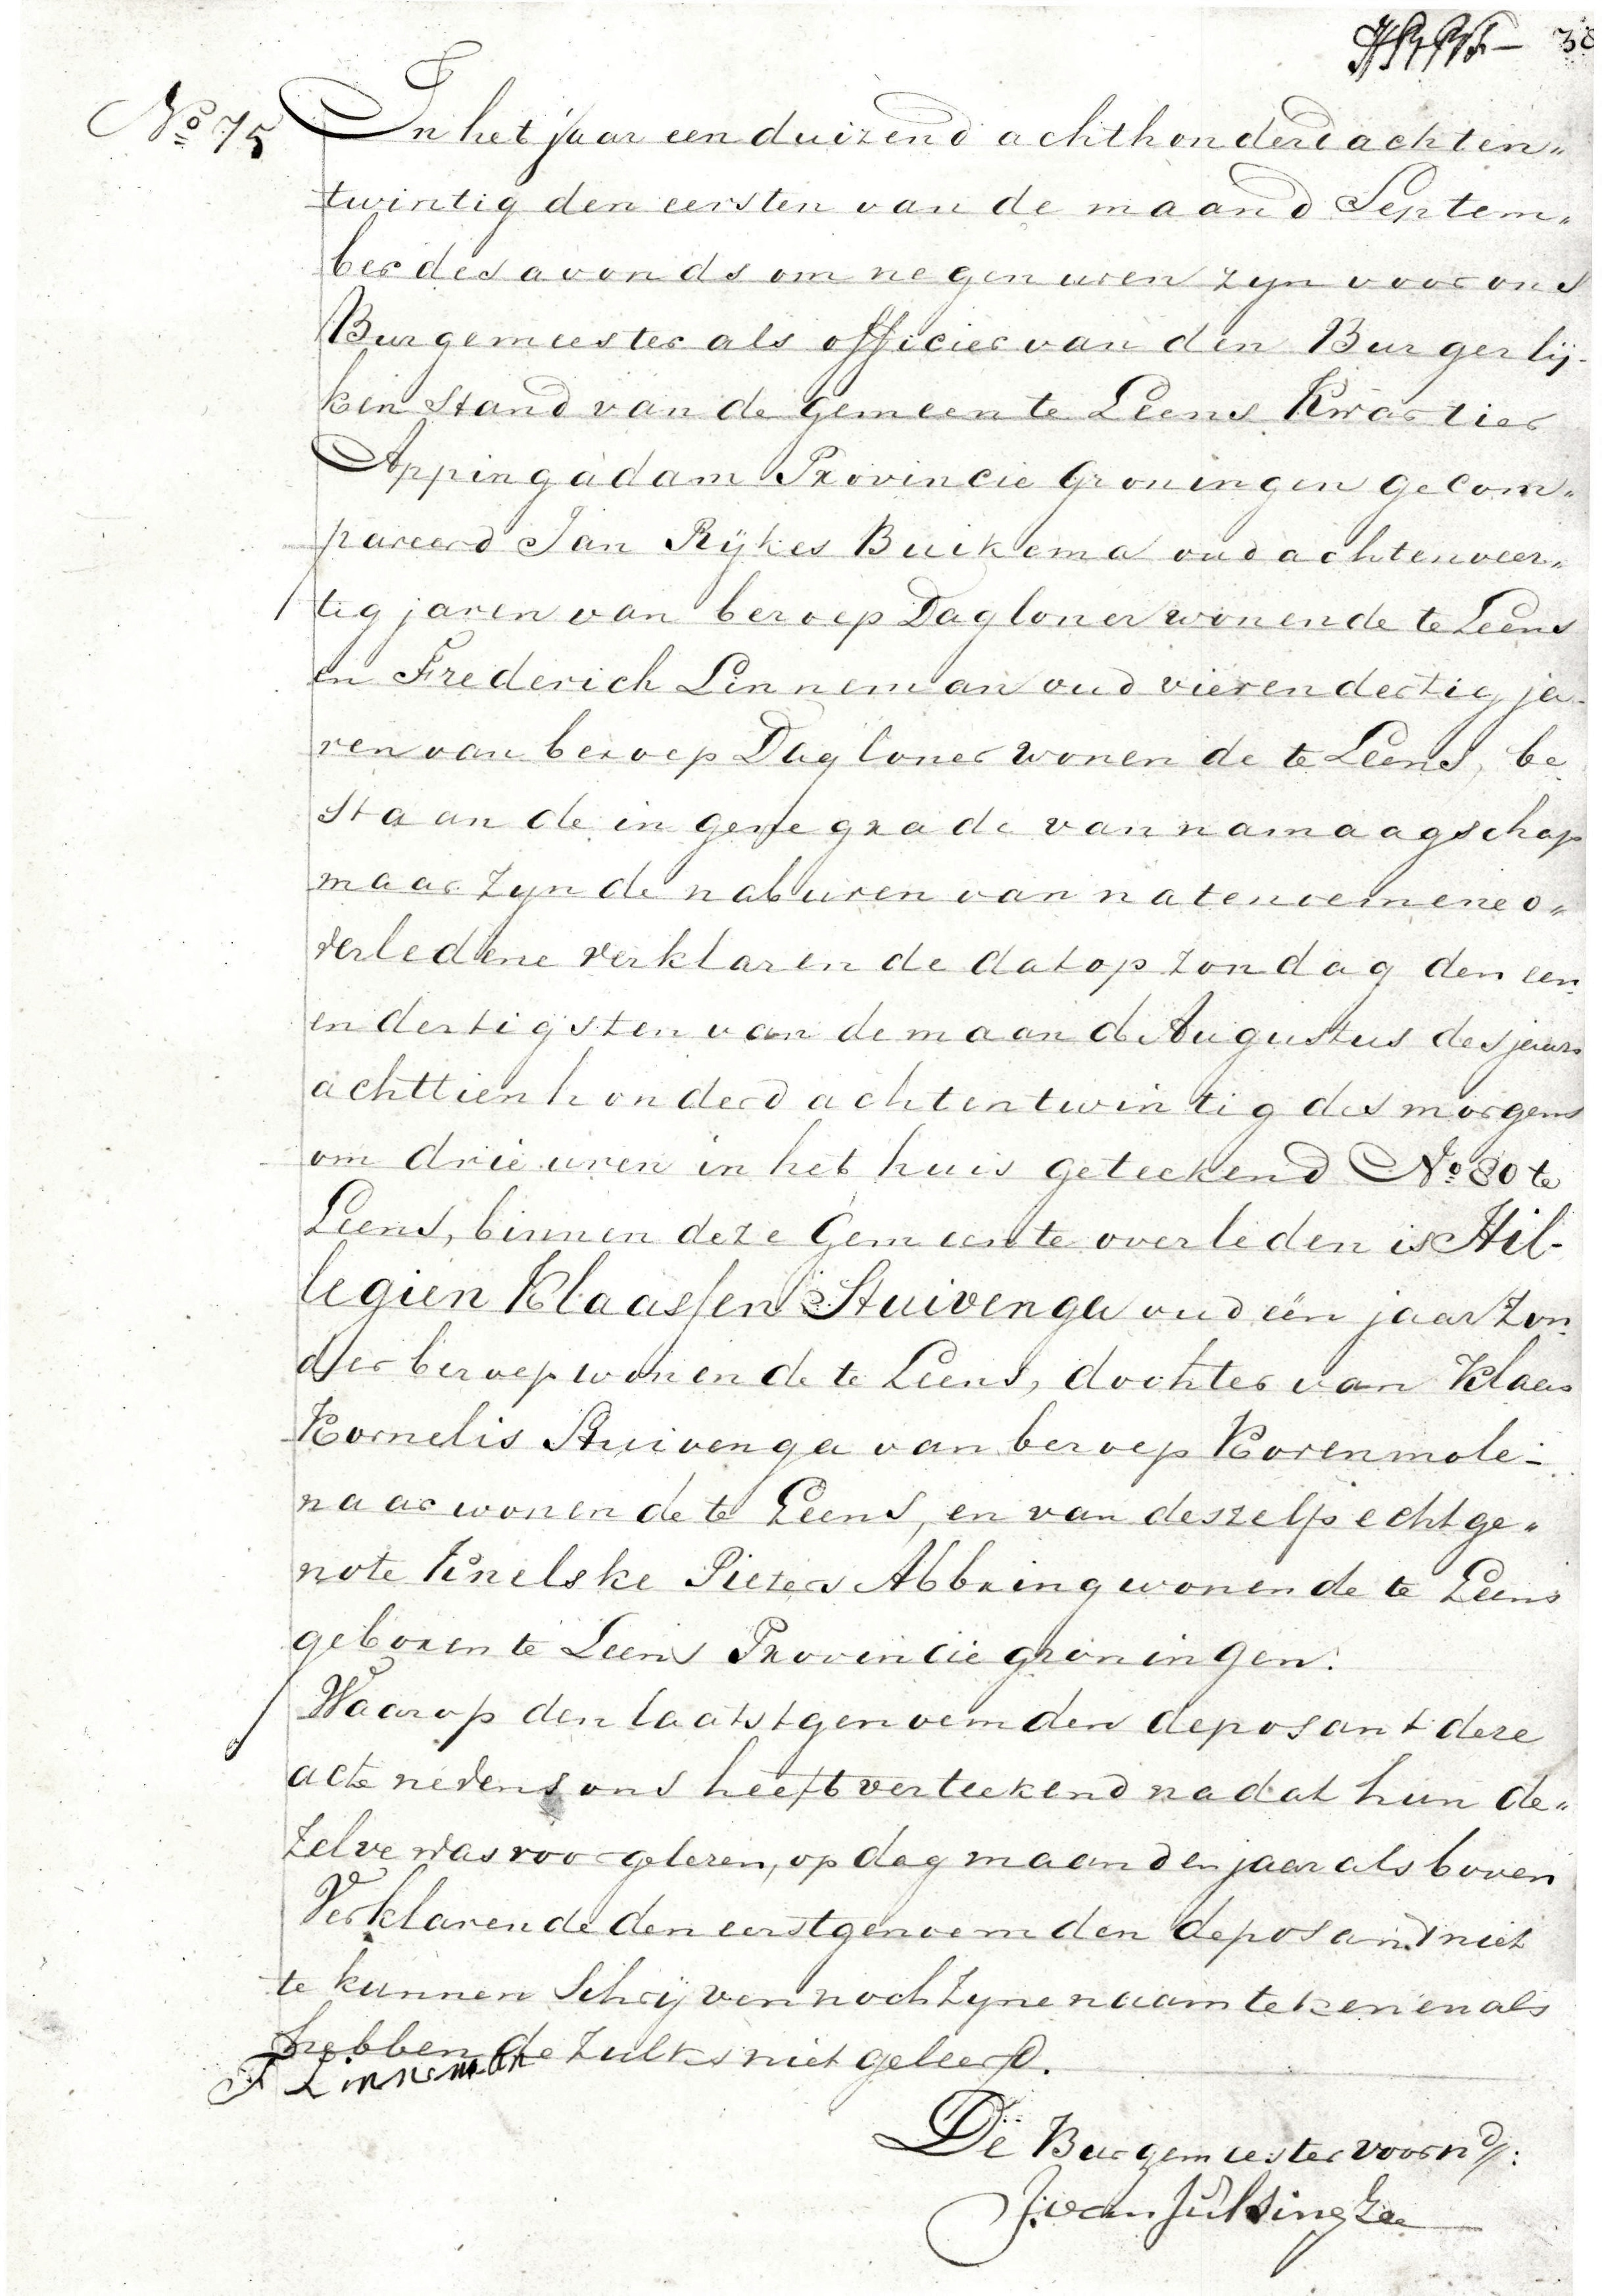 38
No 75 In het jaar een duizend achthonderd achten„
twintig den eersten van de maand Septem„
ber des avonds om negen uren zyn voor ons
Burgemeester als officier van den Burgerlij-
ken Stand van de Gemeente Leens Kwartier
Appingadam Provincie Groningen gecom„
pareerd Jan Rijkes Buikema oud achtenveer„
tig jaren van beroep Dagloner wonende te Leens
en Frederich Linneman oud vierendertig ja-
ren van beroep Dagloner wonende te Leens, be
staande in gene grade van namaagschap
maar zynde naburen van natenoemene o„
verledene verklarende dat op zondag den een
endertigsten van de maand Augustus des jaars
achttienhonderd achtentwintig des morgens
om drie uren in het huis geteekend No 80 te
Leens, binnen deze Gemeente overleden is Hil-
legien Klaassen Stuivenga oud één jaar zon
der beroep wonende te Leens, dochter van Klaas
Kornelis Stuivenga van beroep Korenmole-
naar wonende te Leens, en van deszelfs echtge„
note Knelske Pieters Abbring wonende te Leens
geboren te Leens Provincie groningen.
Waarop den laatstgenoemden deposant deze
acte nevens ons heeft verteekend nadat hun de„
zelve was voorgelezen, op dag maand en jaar als boven
Verklarende den eerstgenoemden deposant niet
te kunnen Schrijven noch zyne naam tekenen als
hebbende zulks niet geleerd.
F Linneman
De Burgemeester voornd:
J. van Julsingha